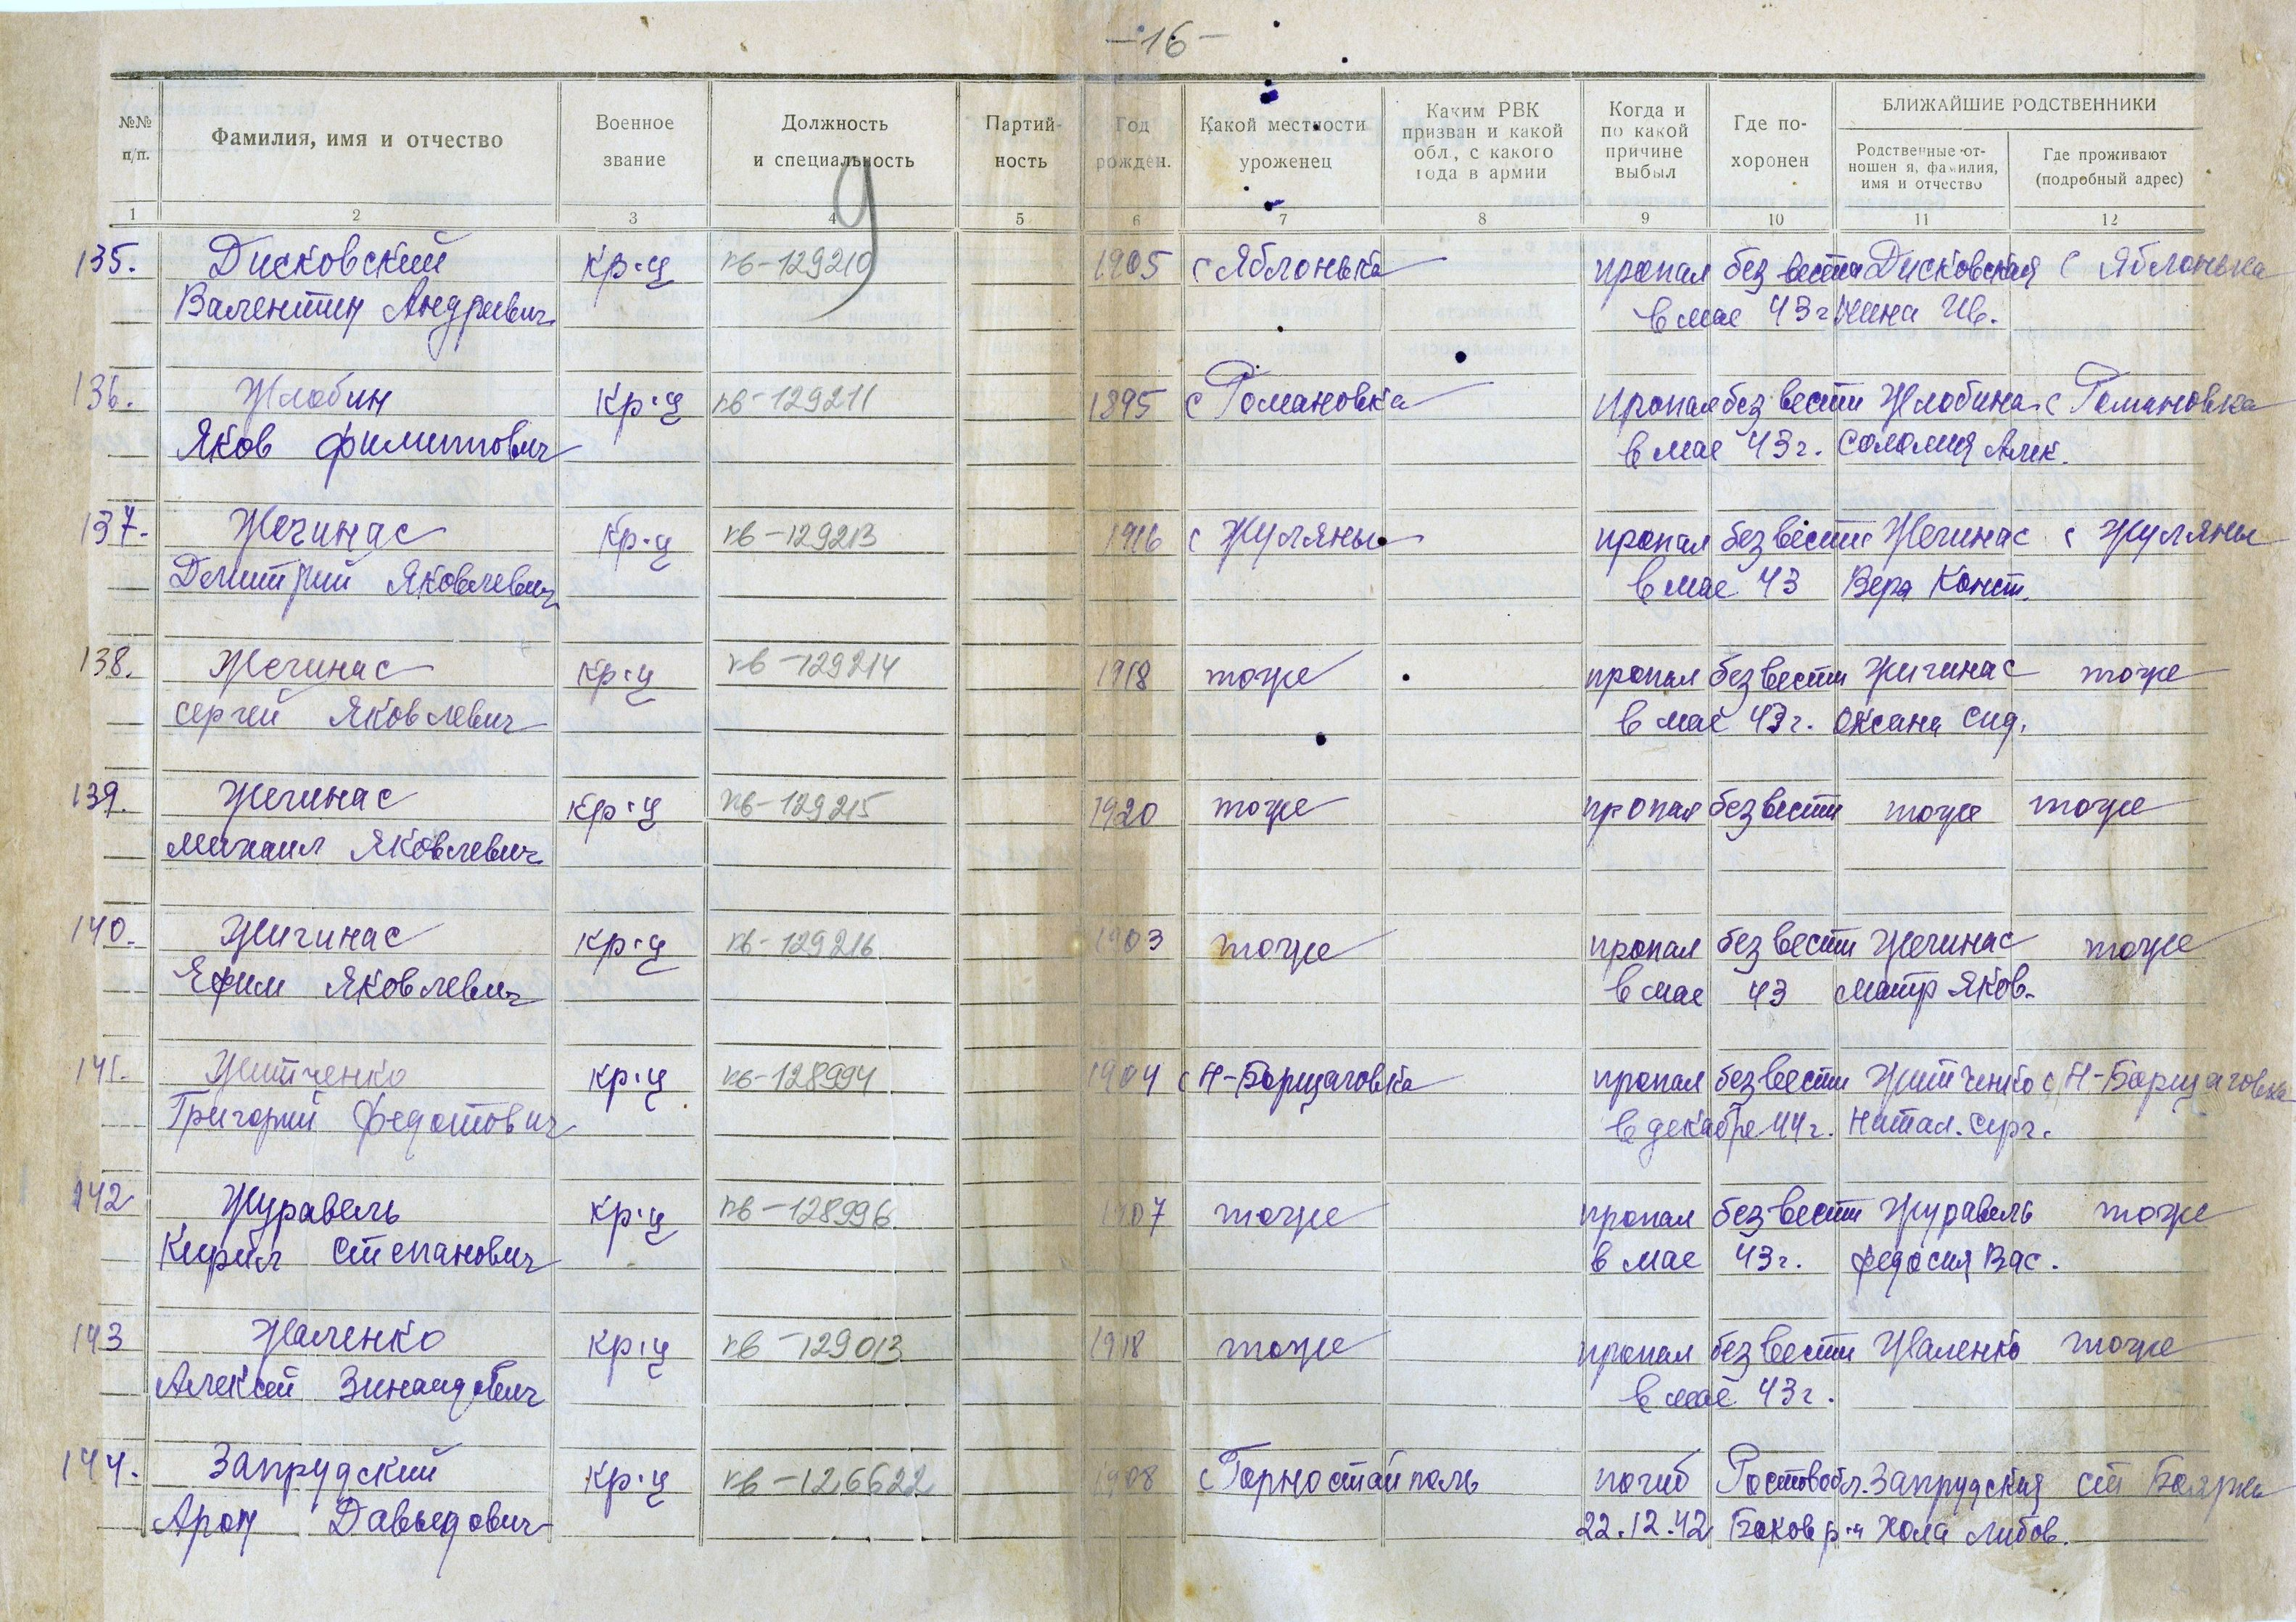 -16-
№№ п/п. Фамилия, имя и отчество Военное звание Должность и специальность Партийность Год рожден. Какой местности уроженец Каким РВК призван и какой обл., с какого года в армии Когда и по какой причине выбыл Где похоронен БЛИЖАЙШИЕ РОДСТВЕННИКИ
Родственные отношен я, фамилия, имя и отчество Где проживают (подробный адрес)
1 2 3 4 5 6 7 8 9 10 11 12
9
135. Дисковский кр-ц пв-129210 1905 с Яблонька пропал без вести Дисковская с Яблонька
Валентин Андреевич в мае 43 г Нина Ив.
136. Жлобин кр-ц пв-129211 1895 с Романовка пропал без вести Жлобина с Романовка
Яков Филиппович в мае 43 г. Соломия Алек.
137. Жегинас кр-ц пв-129213 1916 с Жуляны пропал без вести Жегинас с Жуляны
Дмитрий Яковлевич в мае 43 Вера Конст.
138. Жегинас кр-ц пв-129214 1918 тоже пропал без вести Жигинас тоже
Сергей Яковлевич в мае 43 г. Оксана Сид.
139. Жегинас кр-ц пв-129215 1920 тоже пропал без вести тоже тоже
Михаил Яковлевич
140. Жигинас кр-ц пв-129216 1903 тоже пропал без вести Жегинас тоже
Ефим Яковлевич в мае 43 Матр Яков.
141. Житченко кр-ц пв-128994 1904 с Н-Борщаговка пропал без вести Житченко с Н-Борщаговка
Григорий Федотович в декабре 44 г. Натал. Серг.
142 Журавель кр-ц пв-128996 1907 тоже пропал без вести Журавель тоже
Кирил Степанович в мае 43 г. Федосия Вас.
143 Жаленко кр-ц пв-129013 1918 тоже пропал без вести Жаленко тоже
Алексей в мае 43 г.
144. Запрудский кр-ц пв-126622 1908 с Горностайполь погиб Ростов обл. Запрудская ст Боярка
Арон Давыдович 22.12.42 Боков р-н Хола Либов.